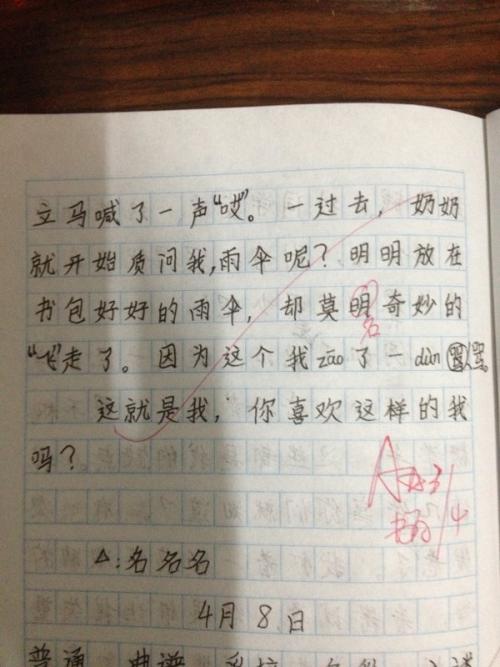 立马喊了一声“哎”。一过去，奶奶
就开始质问我，雨伞呢？明明放在
书包好好的雨伞，却莫明奇妙的
名
“飞”走了。因为这个我zāo了一dùn
这就是我，你喜欢这样的我
吗？
A
△：名名名
4月8日
普通